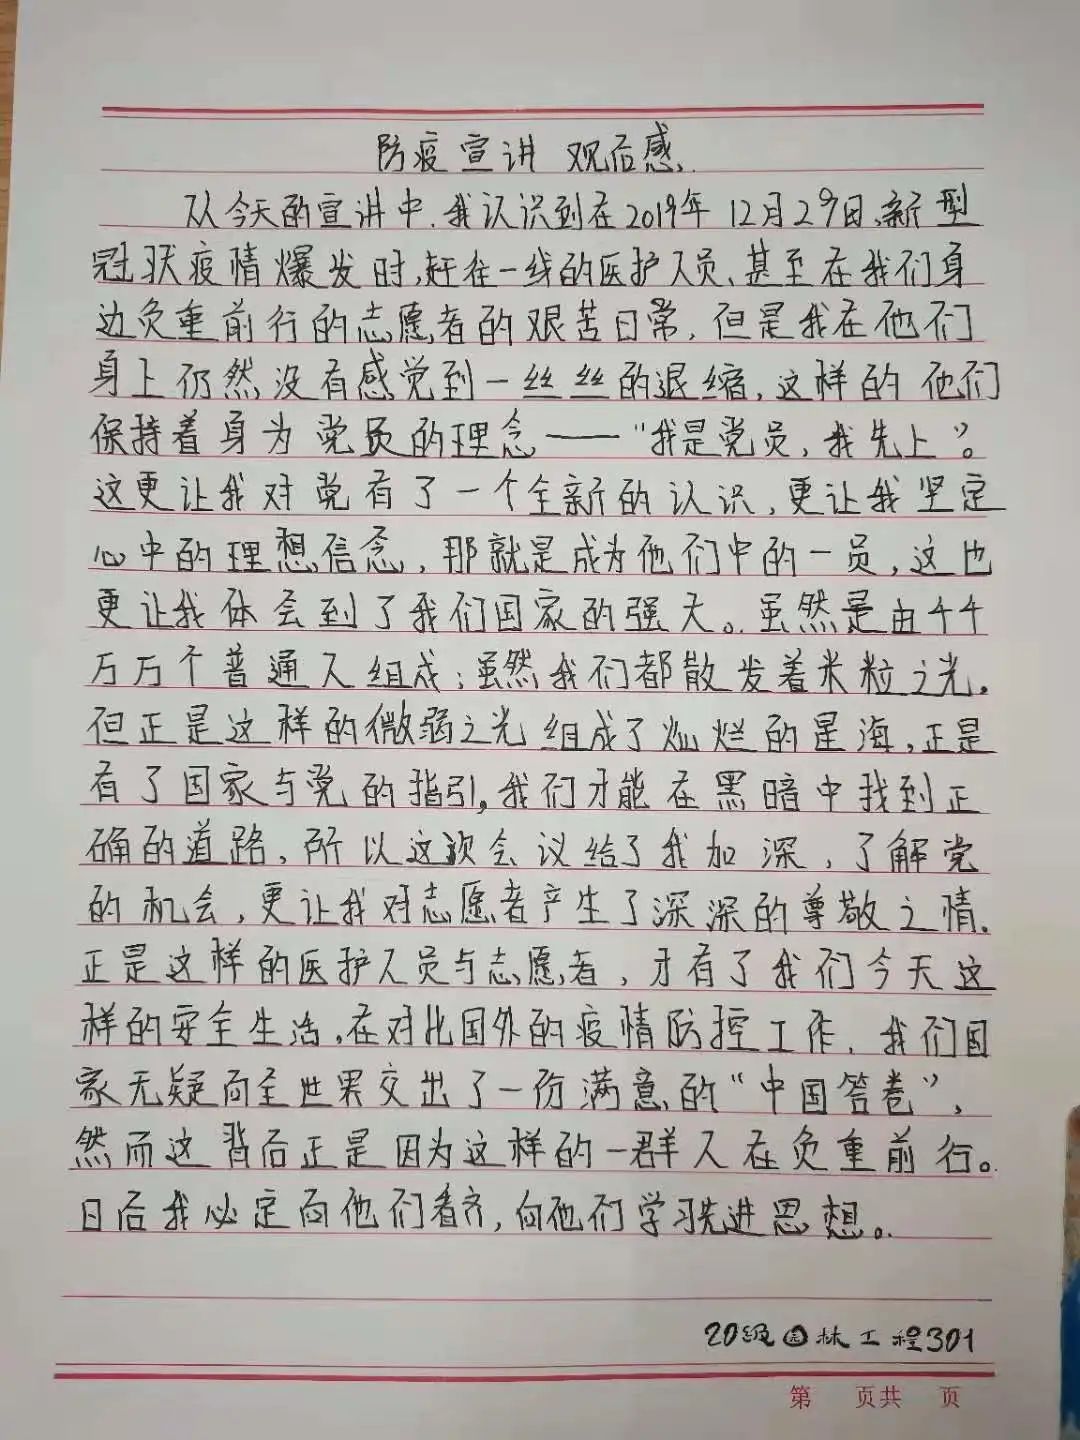 防疫宣讲 观后感
从今天的宣讲中,我认识到在2019年12月29日,新型
冠状疫情爆发时,赶往一线的医护人员、甚至在我们身
边负重前行的志愿者的艰苦日常,但是我在他们
身上仍然没有感觉到一丝丝的退缩,这样的他们
保持着身为党员的理念——“我是党员,我先上”。
这更让我对党有了一个全新的认识,更让我坚定
心中的理想信念,那就是成为他们中的一员,这也
更让我体会到了我们国家的强大。虽然是由千千
万万个普通人组成;虽然我们都散发着米粒之光,
但正是这样的微弱之光组成了灿烂的星海,正是
有了国家与党的指引,我们才能在黑暗中找到正
确的道路,所以这次会议给了我加深,了解党
的机会,更让我对志愿者产生了深深的尊敬之情.
正是这样的医护人员与志愿者,才有了我们今天这
样的安全生活,在对比国外的疫情防控工作,我们国
家无疑向全世界交出了一份满意的“中国答卷”,
然而这背后正是因为这样的一群人在负重前行。
日后我必定向他们看齐,向他们学习先进思想。
20级园林工程301
第 页共 页